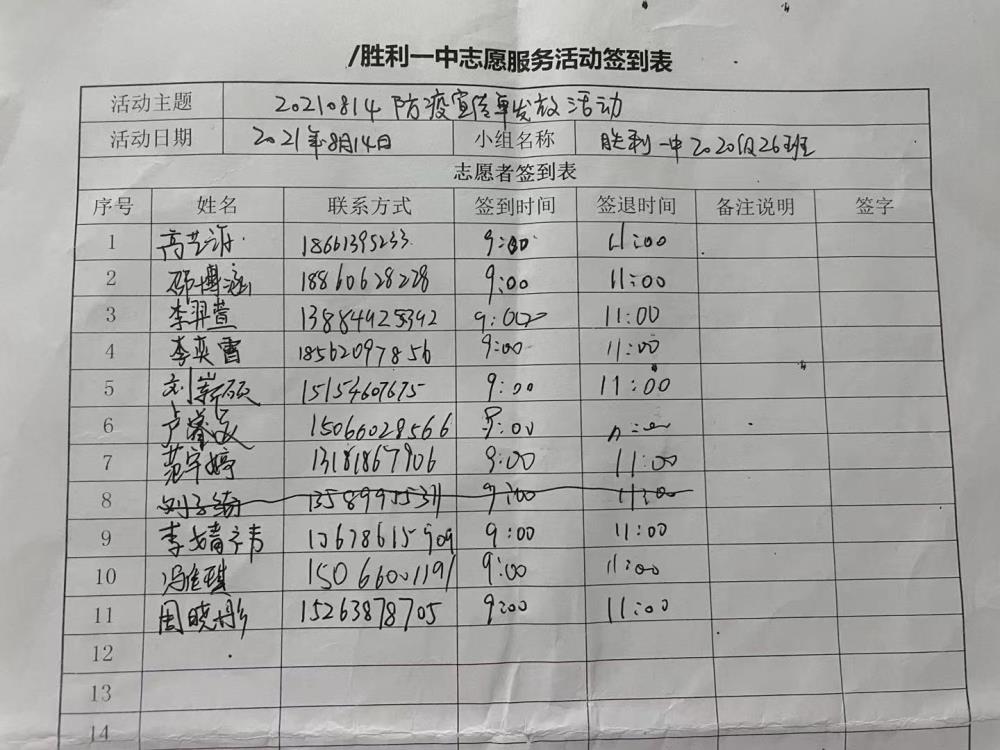 /胜利一中志愿服务活动签到表
活动主题 20210814 防疫宣传单发放活动
活动日期 2021年8月14日 小组名称 胜利一中2020级26班
志愿者签到表
序号 姓名 联系方式 签到时间 签退时间 备注说明 签字
1 18661395233 9:00 11:00
2 邵博涵 18860628228 9:00 11:00
3 李羿萱 13884925392 9:00 11:00
4 李奕霄 18562097856 9:00 11:00
5 刘薪硕 15154607675 9:00 11:00
6 15066028566 9:00
7 范宇婷 13181867906 9:00 11:00
8 9:00 11:00
9 李婧祎 9:00 11:00
10 冯佳琪 15066001191 9:00 11:00
11 周晓彤 15263878705 9:00 11:00
12
13
14